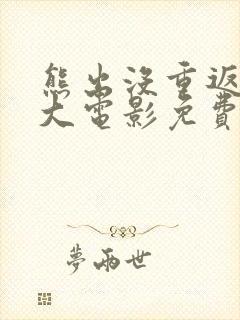 熊出沒重返
大電影免費
夢兩世